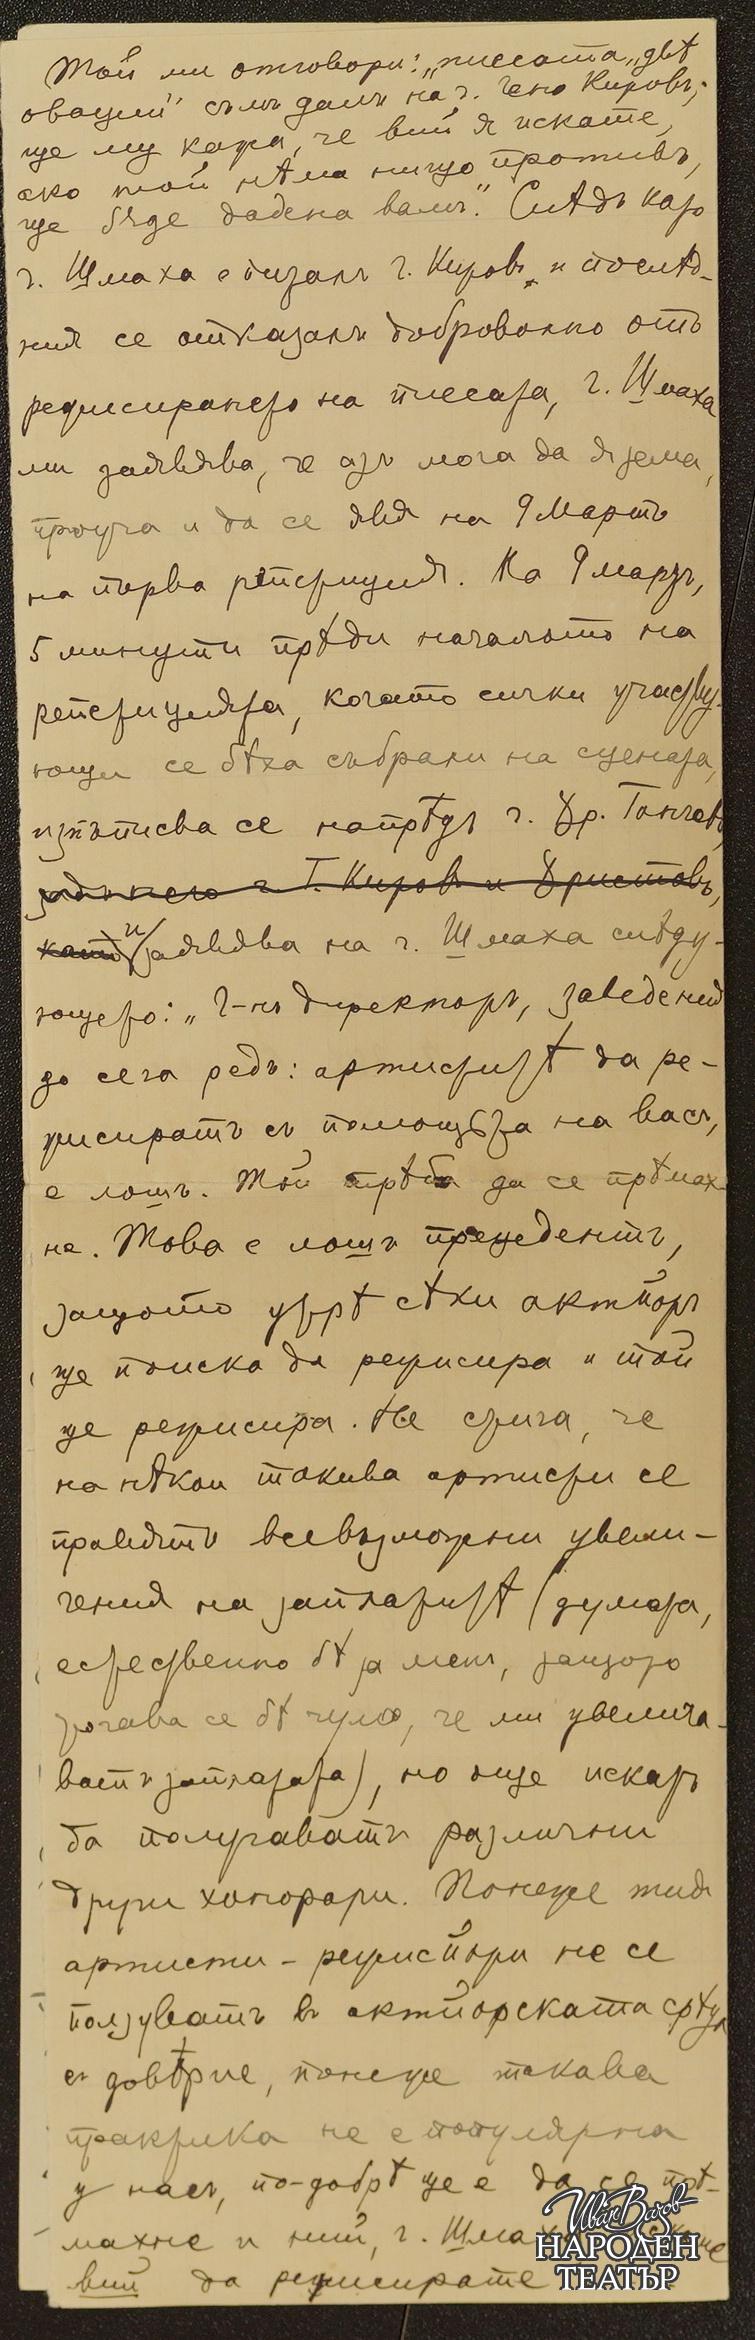 Той ми отговори: „пиесата „двѣ
овации" съмъ далъ на г. Гено Кировъ;
ще му кажа, че вий я искате,
ако той нѣма нищо противъ,
ще бѫде дадена вамъ." Слѣдъ като
г. Шмаха е питалъ г. Кировъ и послѣд-
ния се отказалъ доброволно отъ
режисирането на пиесата, г. Шмаха
ми заявява, че азъ мога да я зема,
проуча и да се явя на 9 Мартъ
на първа репетиция. На 9 мартъ,
5 минути прѣди началото на
репетицията, когато сички участву-
ющи се бѣха събрали на сцената,
изпъписва се напрѣдъ г. Хр. Ганчевъ,
задъ него г. Г. Кировъ и Христовъ,
като и заявява на г. Шмаха слѣду-
ющето: „Г-нъ директоръ, заведений
до сега редъ: артиститѣ да ре-
жисиратъ съ помощьта на васъ,
е лошъ. Той трѣба да се прѣмах-
не. Това е лошъ прецедентъ,
защото утрѣ сѣки актьоръ
ще поиска да режисира и той
ще режисира. Не стига, че
на нѣкои такива артисти се
правятъ всевъзможни увели-
чения на заплатитѣ (думата,
естествено бѣ за менъ, защото
тогава се бѣ чуло, че ми увелича-
ватъ заплатата), но още искатъ
да получаватъ различни
други хонорари. Понеже тия
артисти-режисйори не се
ползуватъ въ актйорската срѣда
съ довѣрие, понеже такава
практика не е популярна
у насъ, по-добрѣ ще е да се прѣ-
махне и ний, г. Шмаха, искаме
вий да режисирате
Иван Вазов
НАРОДЕН
ТЕАТЪР